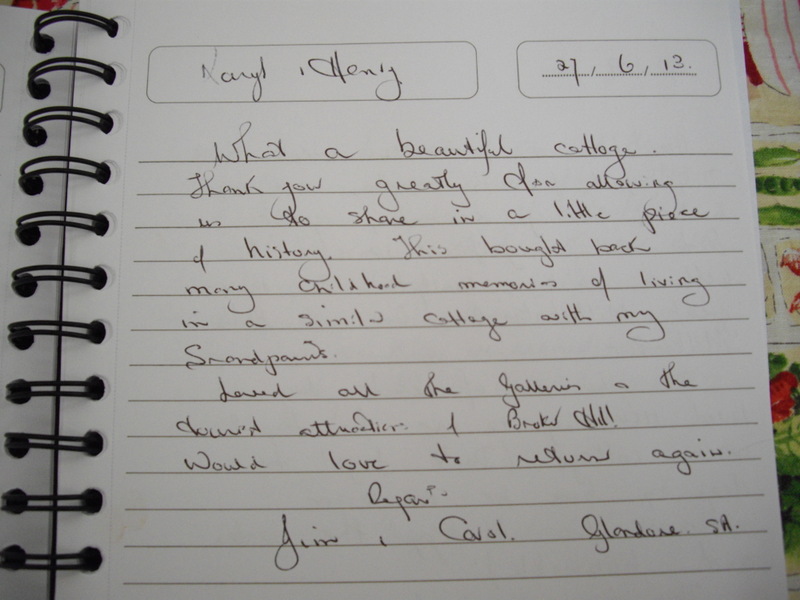 Karyl , Henry
27, 6, 13.
What a beautiful cottage.
Thank you greatly for allowing
us to share in a little piece
of history. This bought back
many childhood memories of living
in a similar cottage with my
Grandparents.
Loved all the galleries & the
tourist attractions of Broken Hill!
Would love to return again.
Regards
Jim , Carol. Glandore SA.